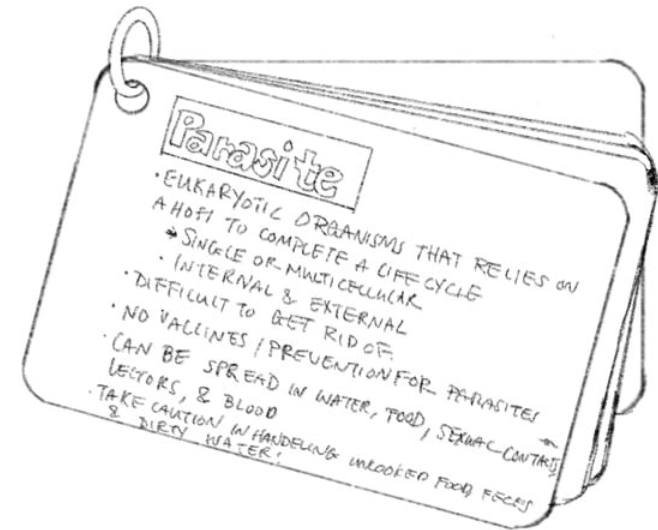 Parasite
• EUKARYOTIC ORGANISMS THAT RELIES ON
A HOST TO COMPLETE A LIFE CYCLE
→ SINGLE OR MULTICELLULAR
• INTERNAL & EXTERNAL
• DIFFICULT TO GET RID OF.
• NO VACCINES / PREVENTION FOR PARASITES
• CAN BE SPREAD IN WATER, FOOD, SEXUAL CONTACTS
VECTORS, & BLOOD
• TAKE CAUTION IN HANDELING UNCOOKED FOOD, FECES
& DIRTY WATER!